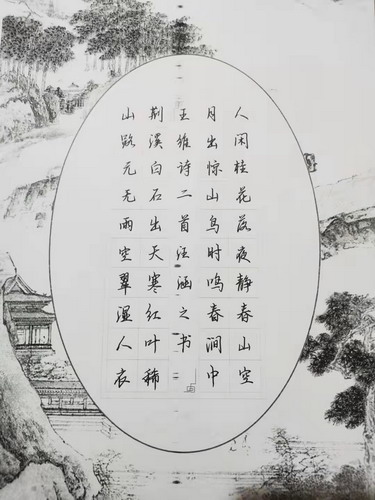 人闲桂花落夜静春山空
月出惊山鸟时鸣春涧中
王维诗二首汪涵之书
荆溪白石出天寒红叶稀
山路元无雨空翠湿人衣